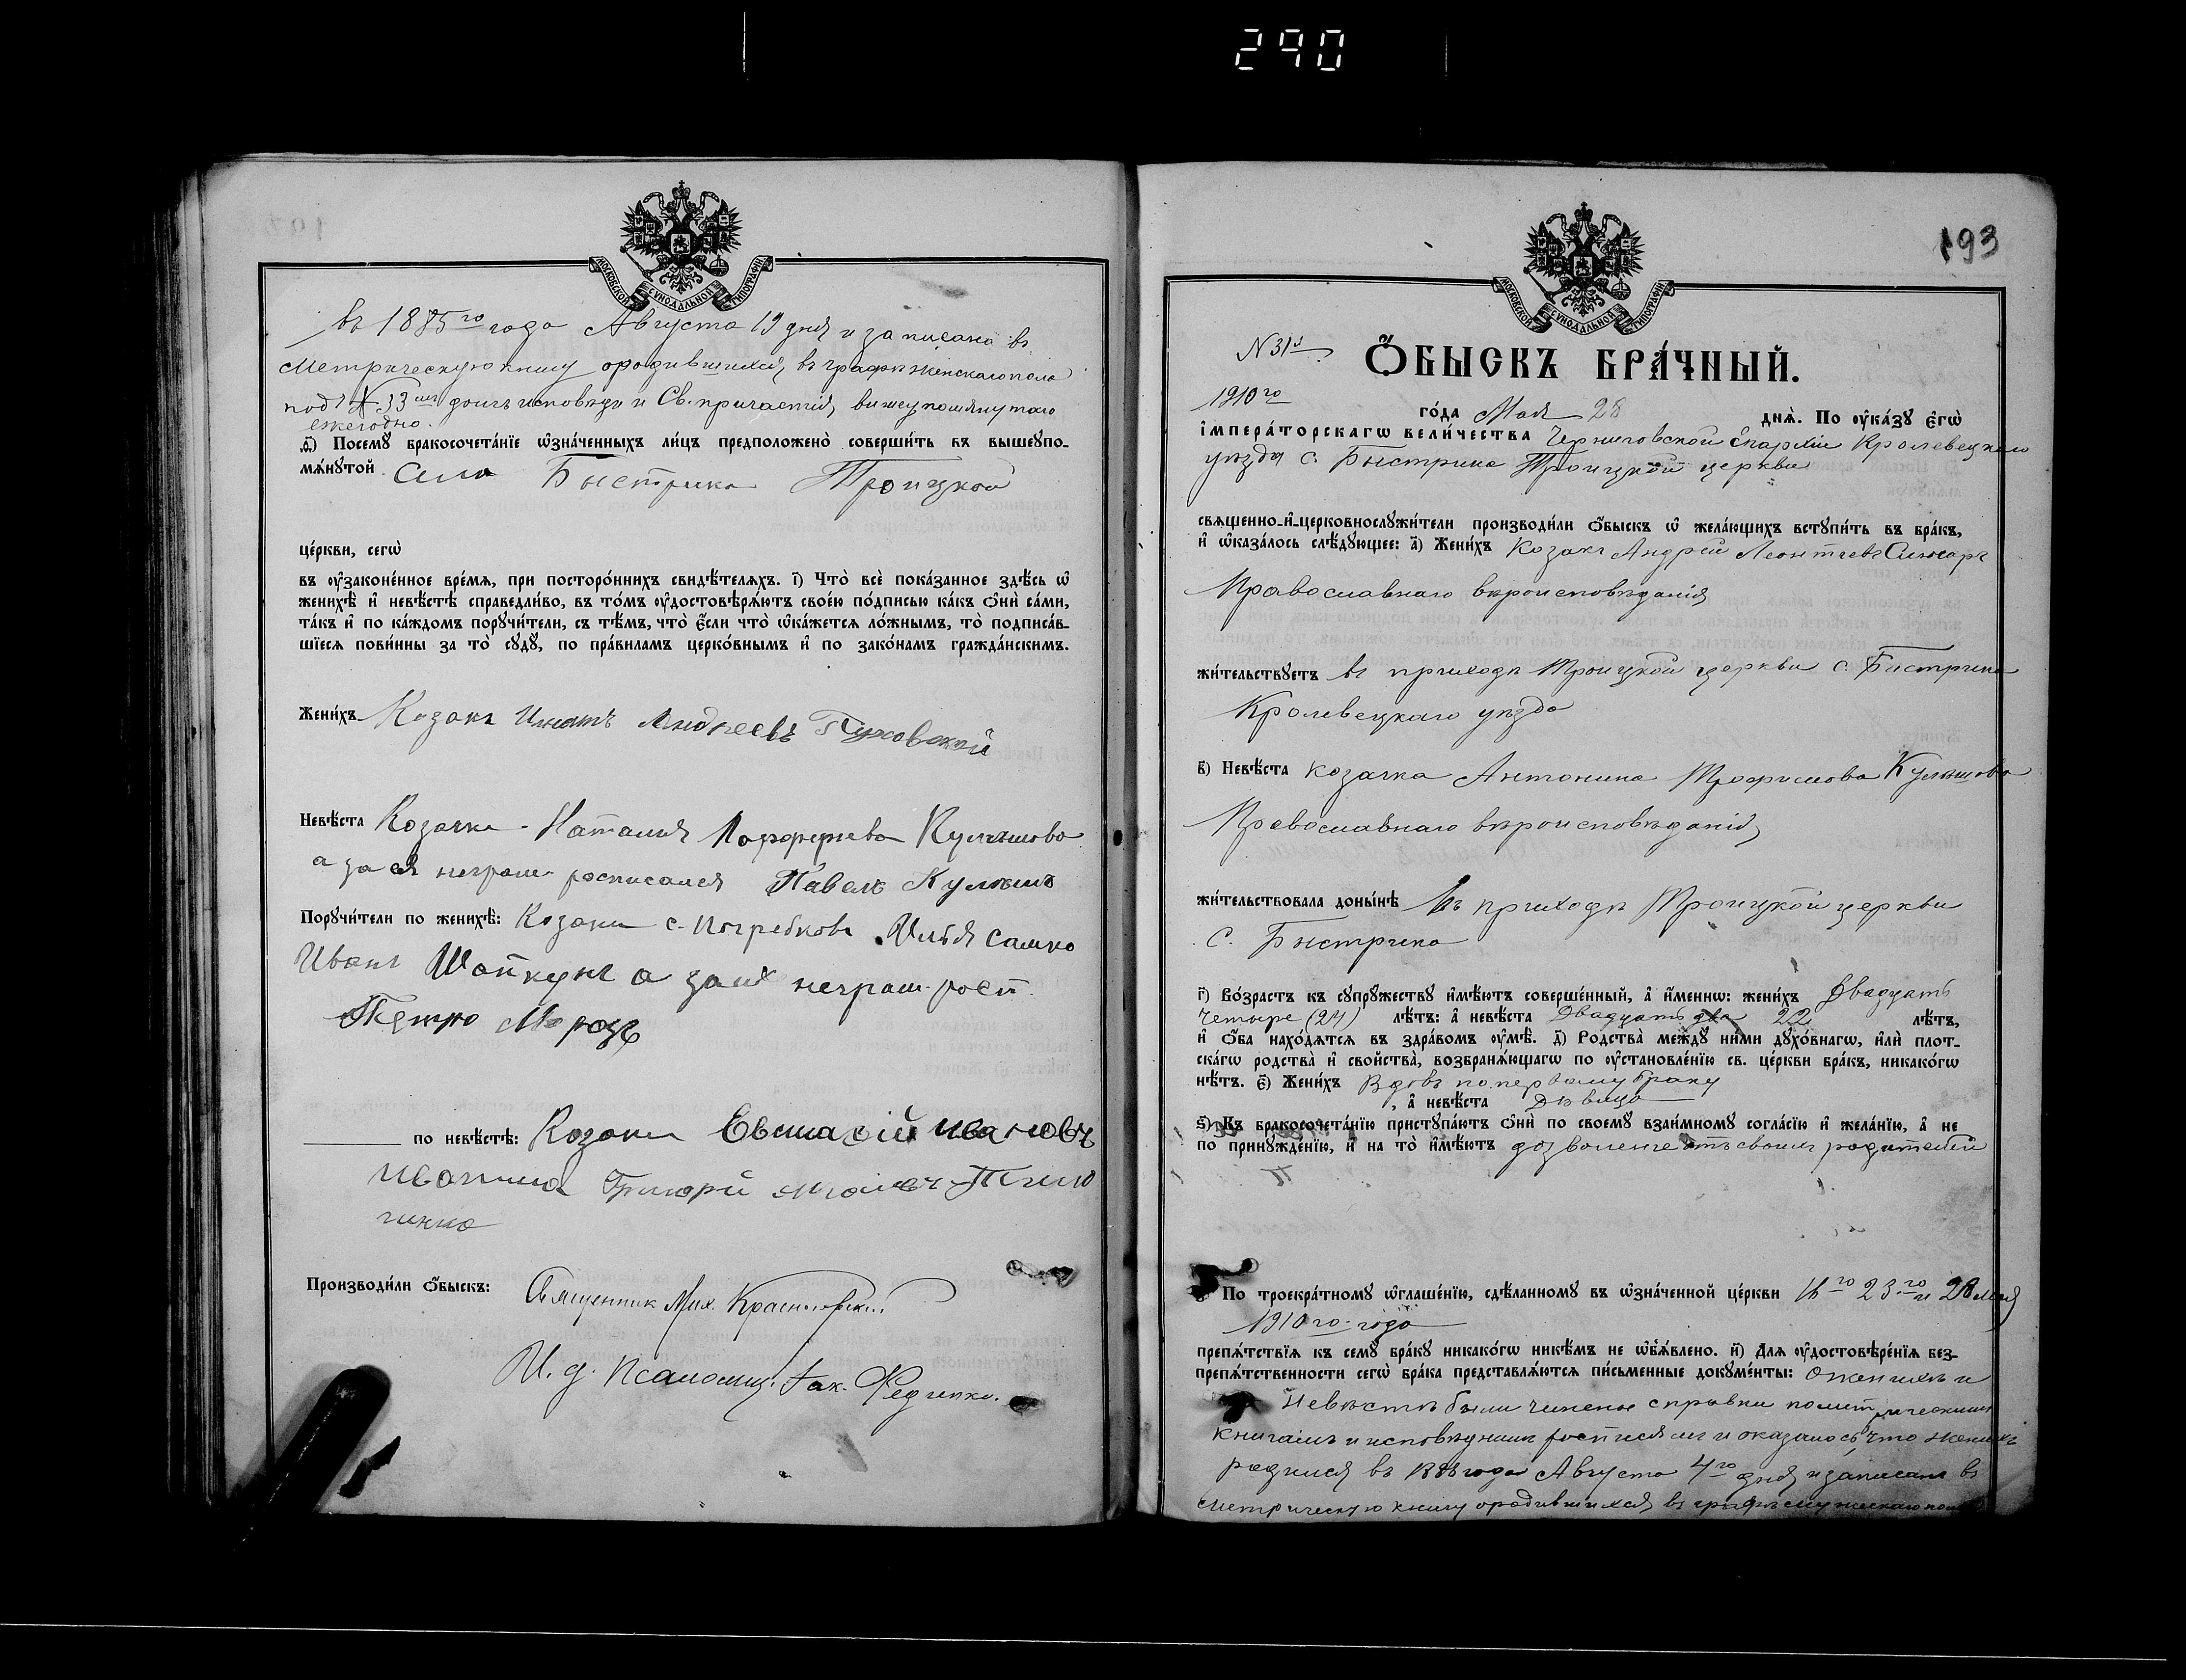 290
МОСКОВСКОЙ СѴНОДАЛЬНОЙ ТИПОГРАФІИ
въ 1885го года Августа 19 дня и записана въ
Метрическую книгу о родившихся, въ графѣ женскаго пола
под № 33 исповѣди и Св. причастія,
ежегодно.
д҃) Посемꙋ бракосочета́нїе ѡ҆зна́ченныхъ ли́цъ предположено̀ соверши́ть въ вышеꙋпо-
мѧ́нꙋтой Села Быстрика Троицкой
це́ркви, сегѡ̀
въ ᲂу҆зако́не́нное вре́мѧ, при посторо́ннихъ свидѣ́телѧхъ. і҃) Что̀ всѐ пока́занное здѣ́сь ѡ҆
женихѣ̀ и҆ невѣ́стѣ справедли́во, въ то́мъ ᲂу҆достовѣрѧ́ютъ свое́ю по́дписью ка́къ ѻ҆нѝ са́ми,
та́къ и҆ по ка́ждомъ порꙋчи́тели, съ тѣ́мъ, что̀ є҆́сли что̀ ѡ҆ка́жетсѧ ло́жнымъ, то̀ подписа́в-
шїесѧ пови́нны за то̀ сꙋдꙋ̀, по пра́виламъ церко́внымъ и҆ по зако́намъ гражда́нскимъ.
Жени́хъ Козакъ Игнатъ Андреевъ Пуховской
Невѣ́ста Козачка Наталия Кулешова
а за ея неграм. росписался Павелъ Кулешъ
Порꙋчи́тели по женихѣ̀: Козаки с. Погребковъ Илья Сашко
Иванъ Шапкунъ а за их неграм. росп.
Петро Морозъ
по невѣ́стѣ: Козаки Евстафій Ивановъ
Григорій
Производи́ли ѻ҆́быскъ: Священник Мих.
И. д. псаломщ. Іак. Федченко.
193
МОСКОВСКОЙ СѴНОДАЛЬНОЙ ТИПОГРАФІИ
N 31й
Ѻ҆́БЫСКЪ БРА́ЧНЫЙ.
1910го
го́да Мая 28 днѧ̀. По ᲂу҆ка́зꙋ є҆гѡ̀
і҆мпера́торскагѡ вели́чества Черниговской Епархіи Кролевецкаго
уѣзда с. Быстрика Троицкой церкви
свѧщенно-и҆-церковнослꙋжи́тели производи́ли ѻ҆́быскъ ѡ҆ жела́ющихъ встꙋпи́ть въ бра́къ,
и҆ ѡ҆каза́лось слѣ́дꙋющее: а҃) Жени́хъ Козакъ Андрей Леонтіевъ Слюсаръ
Православнаго вѣроисповѣданія
жи́тельствꙋетъ въ приходѣ Троицкой церкви с. Быстрика
Кролевецкаго уѣзда
в҃) Невѣ́ста козачка Антонина Трофимова Кулешова
Православнаго вѣроисповѣданія,
жи́тельствовала доны́нѣ въ приходѣ Троицкой церкви
с. Быстрика
г҃) Во́зрастъ къ сꙋпрꙋжествꙋ и҆мѣ́ютъ соверше́нный, а҆ и҆́меннѡ: жени́хъ Двадцать
Четыре (24) лѣ́тъ: а҆ невѣ́ста Двадцать два 22 лѣ́тъ,
и҆ ѻ҆́ба нахо́дѧтсѧ въ здра́вомъ ᲂу҆мѣ̀. д҃) Родства̀ междꙋ̀ ни́ми дꙋхо́внагѡ, и҆лѝ плот-
ска́гѡ родства̀ и҆ сво́йства̀, возбранѧ́ющагѡ по ᲂу҆становле́нїю св. це́ркви бра́къ, никако́гѡ
нѣ́тъ. є҃) Жени́хъ Вдовъ по первому браку
, а҆ невѣ́ста Дѣвица
ѕ҃) Къ бракосочета́нїю пристꙋпа́ютъ ѻ҆нѝ по своемꙋ̀ взаи́мномꙋ согла́сїю и҆ жела́нїю, а҆ не
по принꙋжде́нїю, и҆ на то̀ и҆мѣ́ютъ дозволение отъ своихъ родителей
По троекра́тномꙋ ѡ҆глаше́нїю, сдѣ́ланномꙋ въ ѡ҆зна́ченной це́ркви 16го 23го и 28 Мая
1910го года
препѧ́тствїѧ къ семꙋ̀ бра́кꙋ никако́гѡ никѣ́мъ не ѡ҆б̾ѧ́влено. и҃) Длѧ ᲂу҆достовѣре́нїѧ без-
препѧ́тственности сегѡ̀ бра́ка представлѧ́ютсѧ пи́сьменные докꙋме́нты: О женихѣ и
Невѣстѣ были чинены справки по метрическимъ
книгамъ и исповѣднымъ росписямъ и оказалось, что женихъ
родился въ года Августа 4го дня и записанъ въ
метрическую книгу о родившихся, въ графѣ мужескаго пола